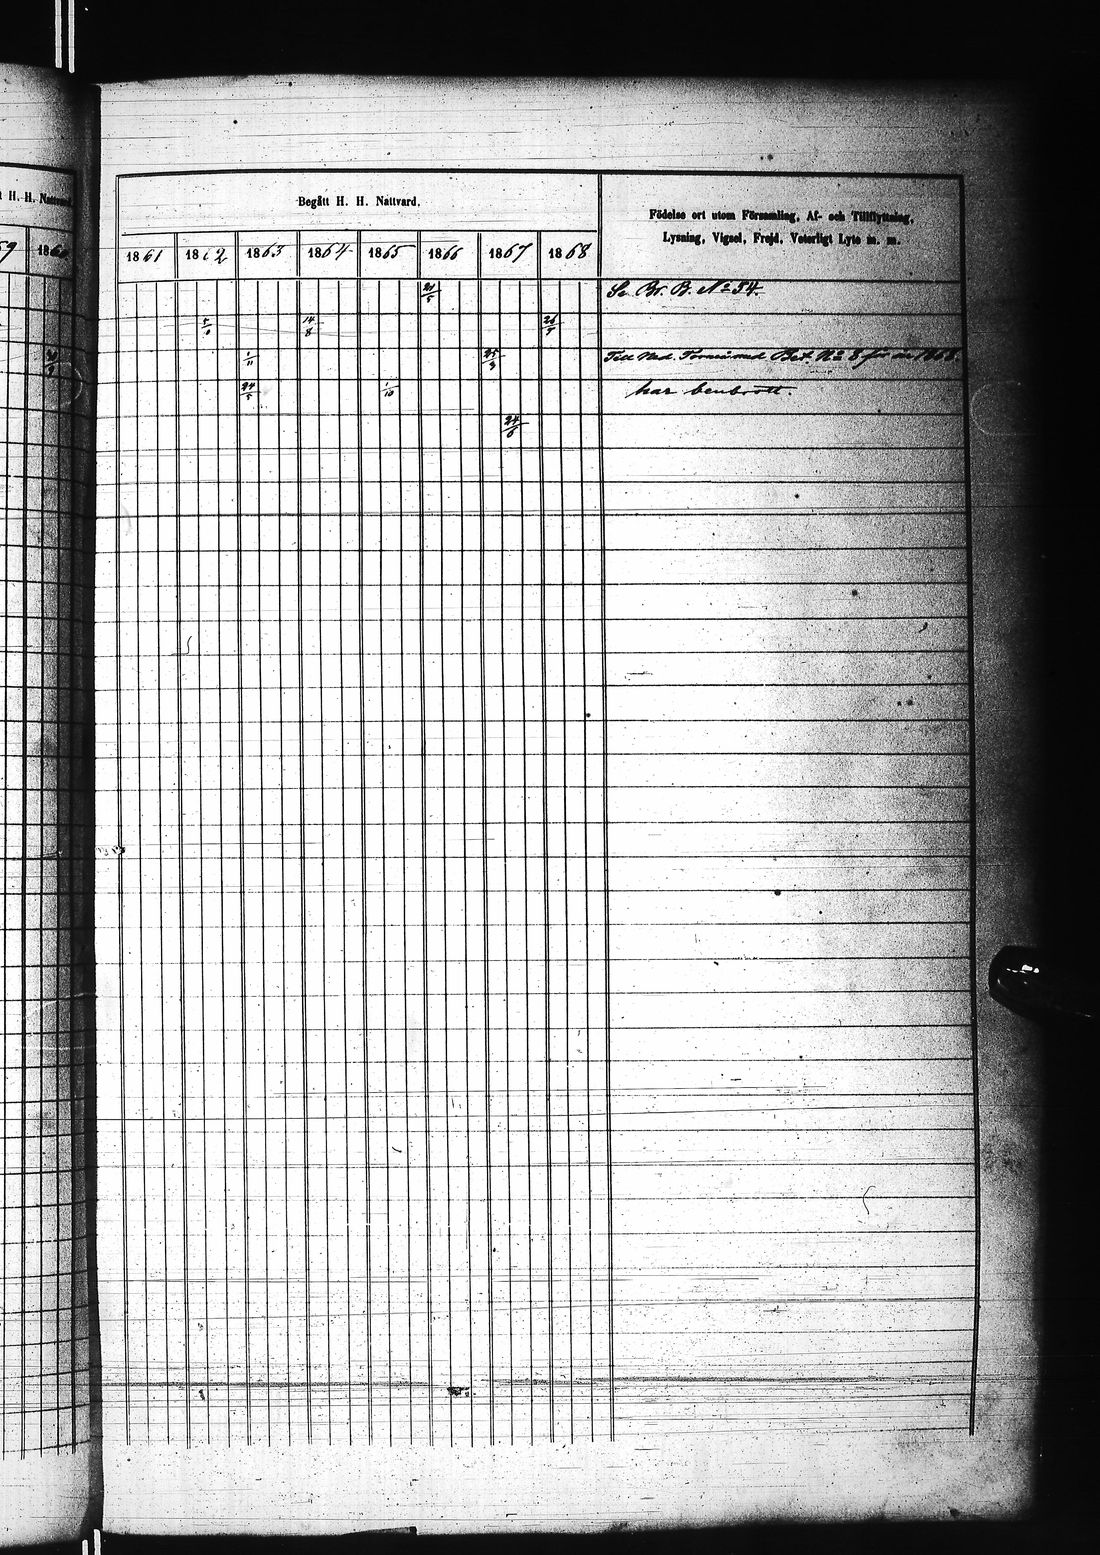 t H. H. Nattvard.
Begått H. H. Nattvard.
Födelse ort utom Församling, Af- och Tillflyttning,
Lysning, Vigsel, Frejd, Veterligt Lyte m. m.
9 1860 1861 1862 1863 1864 1865 1866 1867 1868
Se Br. B. No 54.
14/8 26/5
1/11 25/3 Till Ned. No 8 för år 1868.
24/5 1/10 har benbrott.
24/6